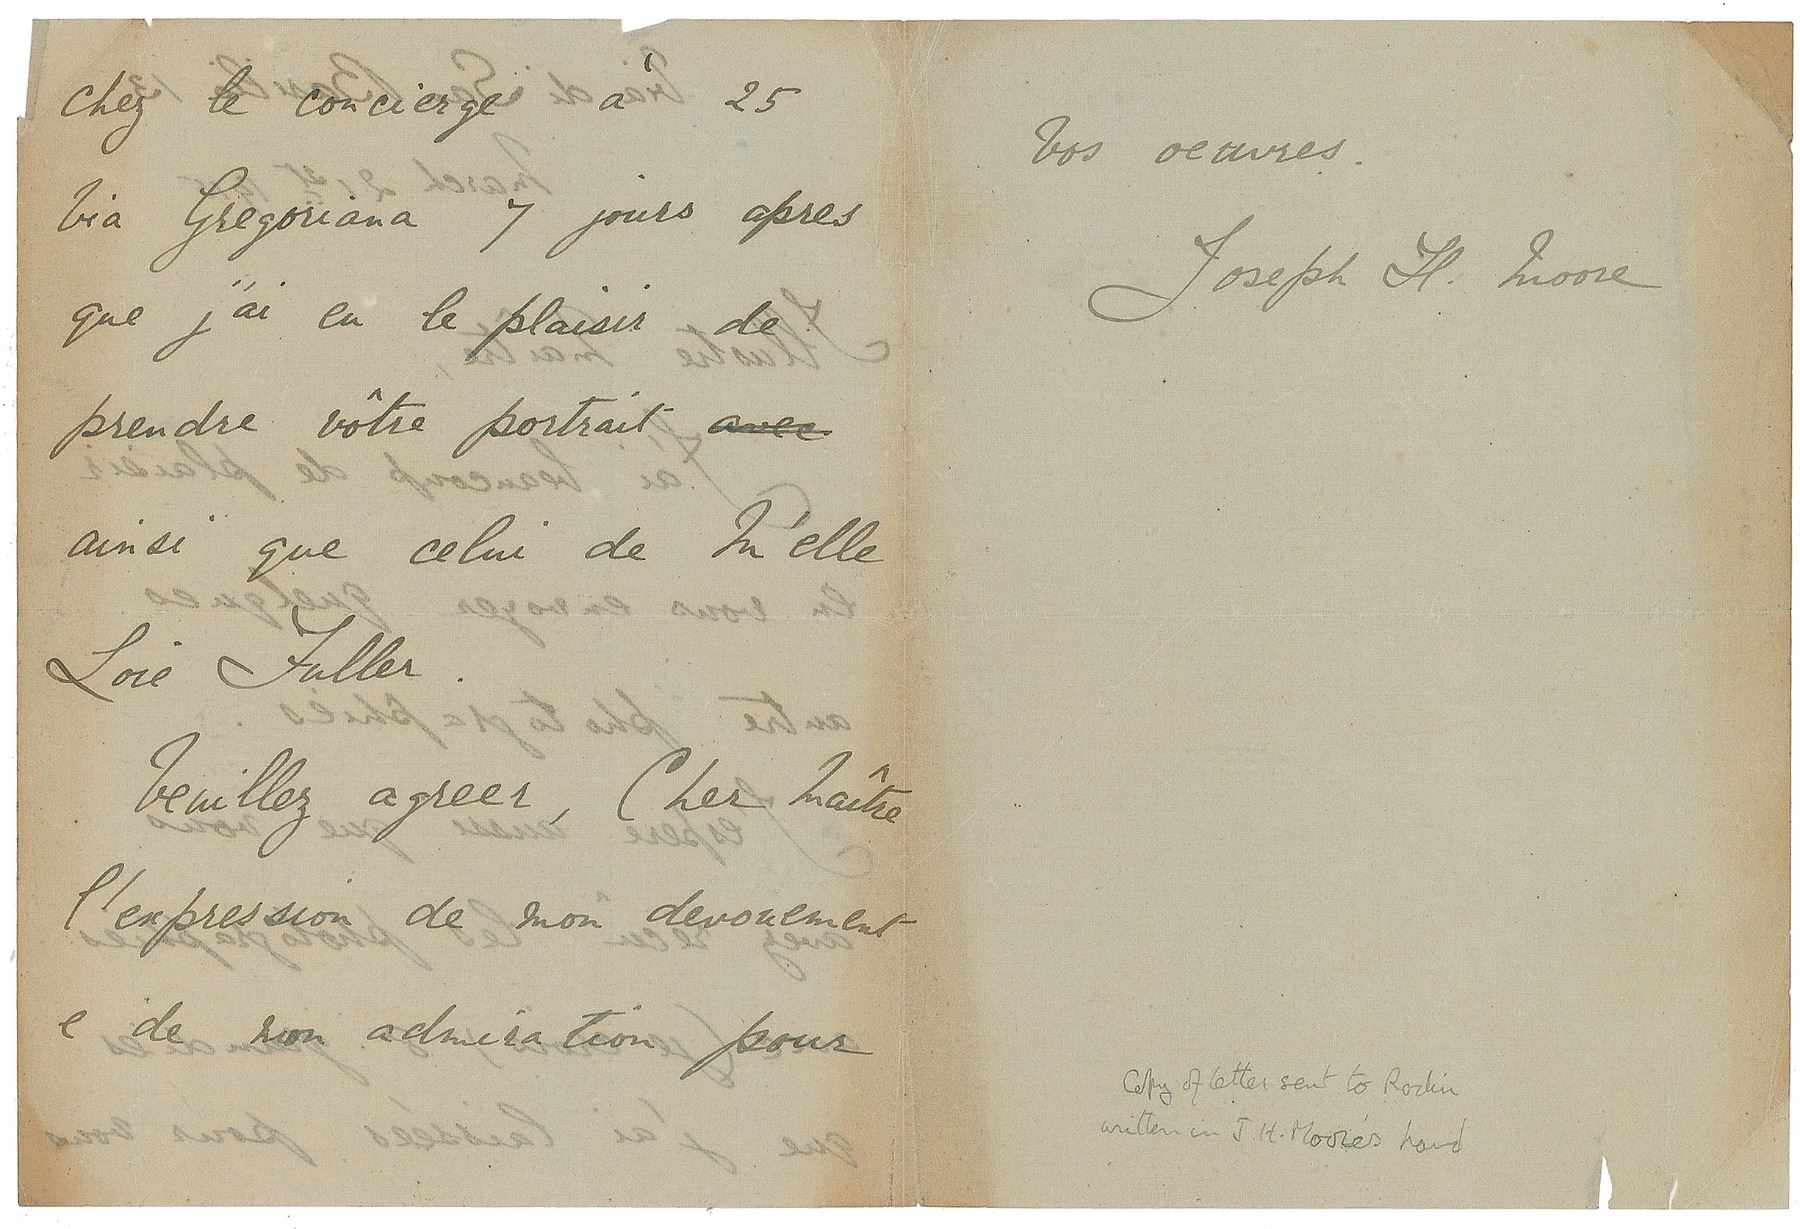 chez le concierge à 25
Via Gregoriana 7 jours apres
que j'ai eu le plaisir de
prendre vôtre portrait avec
ainsi que celui de M'elle
Loie Fuller.
Veuillez agreer, Cher Maître
l'expression de mon devouement
e de mon admiration pour
vos oeuvres.
Joseph H. Moore
Copy of letter sent to Rodin
written in J.H. Moore's hand